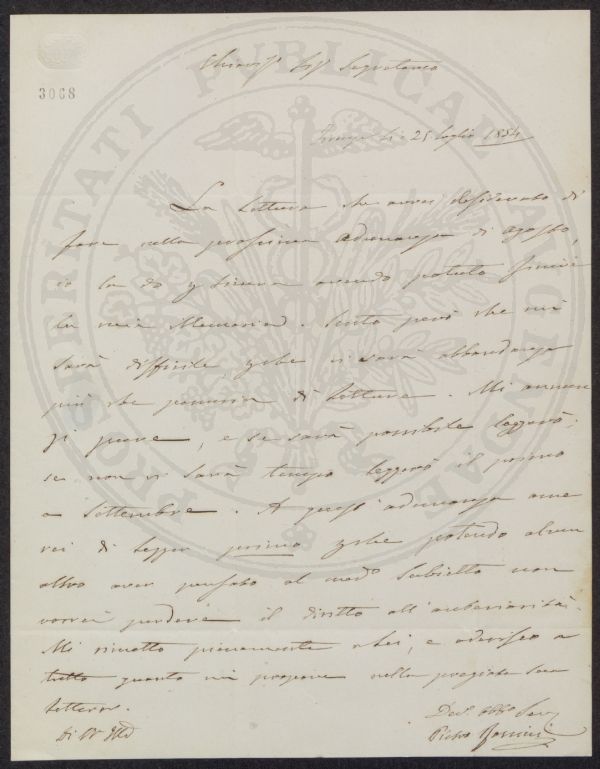 3068
Chiaris. Sig. Segretario
Firenze li 25 luglio 1854
La lettura che avrei desiderato di
fare nella prossima adunanza di agosto,
io la do p sicura avendo potuto finire
la mia Memoria. Sento però che mi
sarà difficile, pche vi sarà abbondanza
più che penuria di letture. Mi annun
zi pure, e se sarà possibile leggerò;
se non vi sarà tempo leggerò il primo
a Settembre. A quest'adunanza ame
rei di legger primo pche potendo alcun
altro aver pensato al med° subietto non
vorrei perdere il diritto all'anteriorità.
Mi rimetto pienamente a Lei, e aderisco a
tutto quanto mi propone nella pregiata sua
lettera.
Di VS Ill
Dev. Obb. Serv
Pietro
PROSPERITATI PUBLICAE AUGENDAE